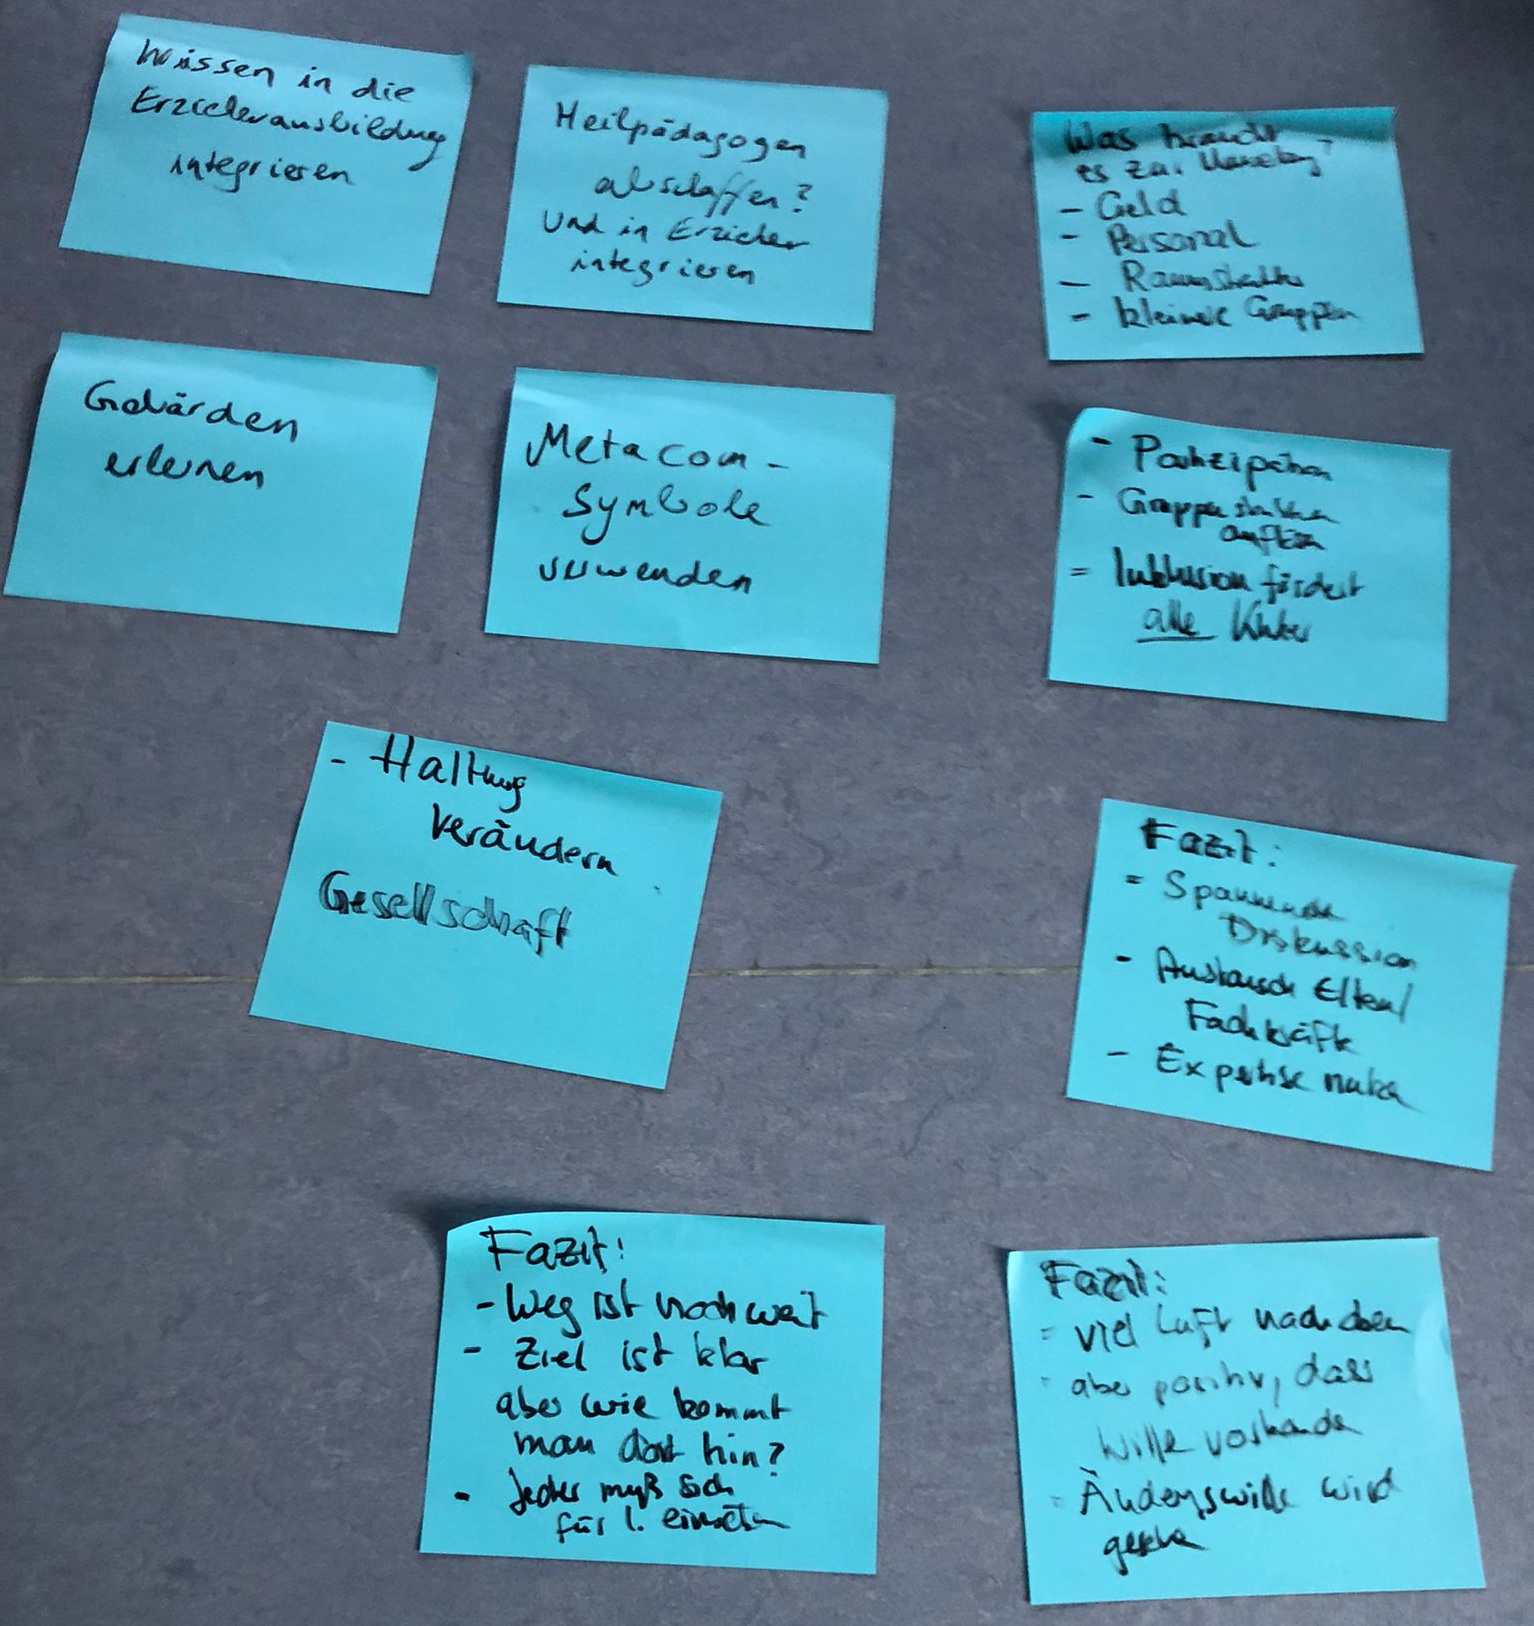 Wissen in die
Erzieherausbildung
integrieren
Heilpädagogen
abschaffen?
Und in Erzieher
integrieren
Was braucht
es zur Umsetzung?
- Geld
- Personal
- Raumstruktur
- kleinere Gruppen
Gebärden
erlernen
Metacom-
Symbole
verwenden
- Partizipation
- Gruppenstrukturen
auflösen
= Inklusion fördert
alle Kinder
- Haltung
verändern
Gesellschaft
Fazit:
= Spannende
Diskussion
- Austausch Eltern/
Fachkräfte
- Expertise nutzen
Fazit:
- Weg ist noch weit
- Ziel ist klar
aber wie kommt
man dort hin?
- Jeder muß sich
für I. einsetzen
Fazit:
= viel Luft nach oben
- aber positiv, dass
Wille vorhanden
- Änderungswille wird
gesehen